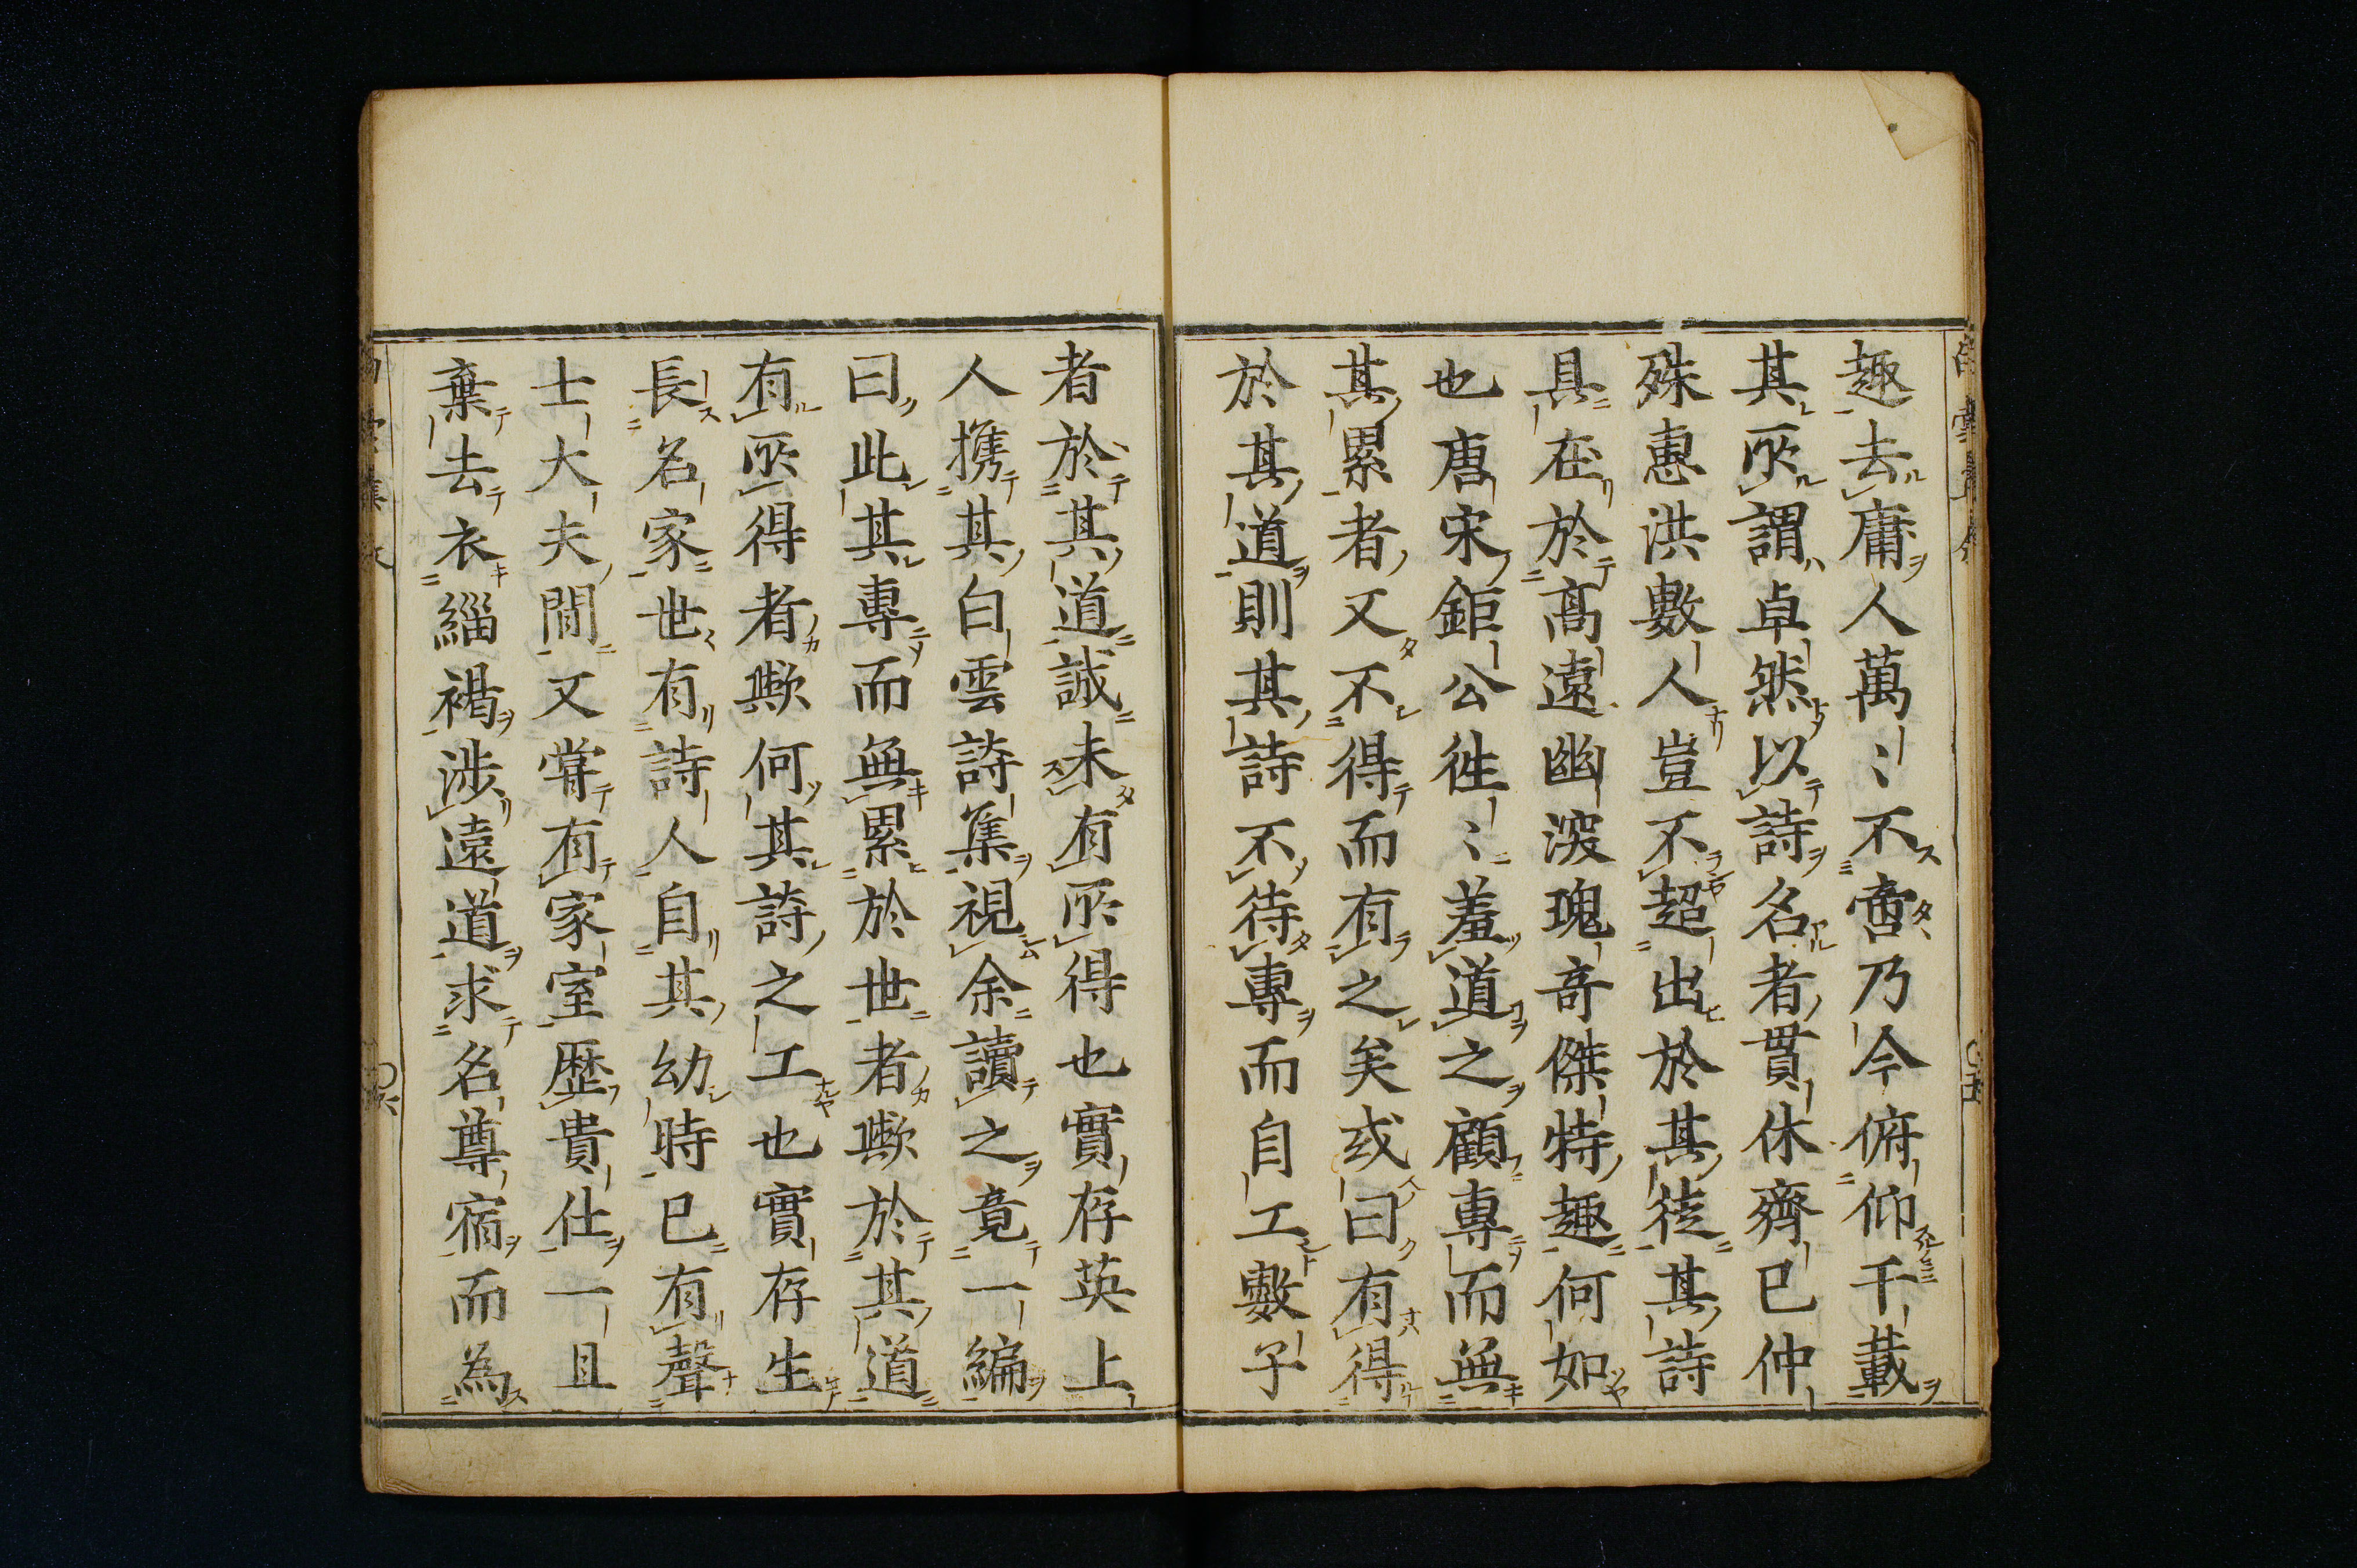 趣去庸人萬〻不啻乃今俯仰千載
其所謂卓然以詩名者貫休齊已仲
殊惠洪數人豈不超出於其徒其詩
具在於高遠幽深瑰竒傑特趣何如
也唐宋鉅公徃〻羞道之顧專而無
其累者又不得而有之矣或曰有得
於其道則其詩不待專而自工數子
者於其道誠未有所得也實存英上
人攜其白雲詩集視余讀之竟一編
曰此其專而無累於世者歟於其道
有所得者歟何其詩之工也實存生
長名家世有詩人自其幼時已有聲
士大夫間又甞有家室歷貴仕一且
棄去衣緇褐涉遠道求名尊宿而為